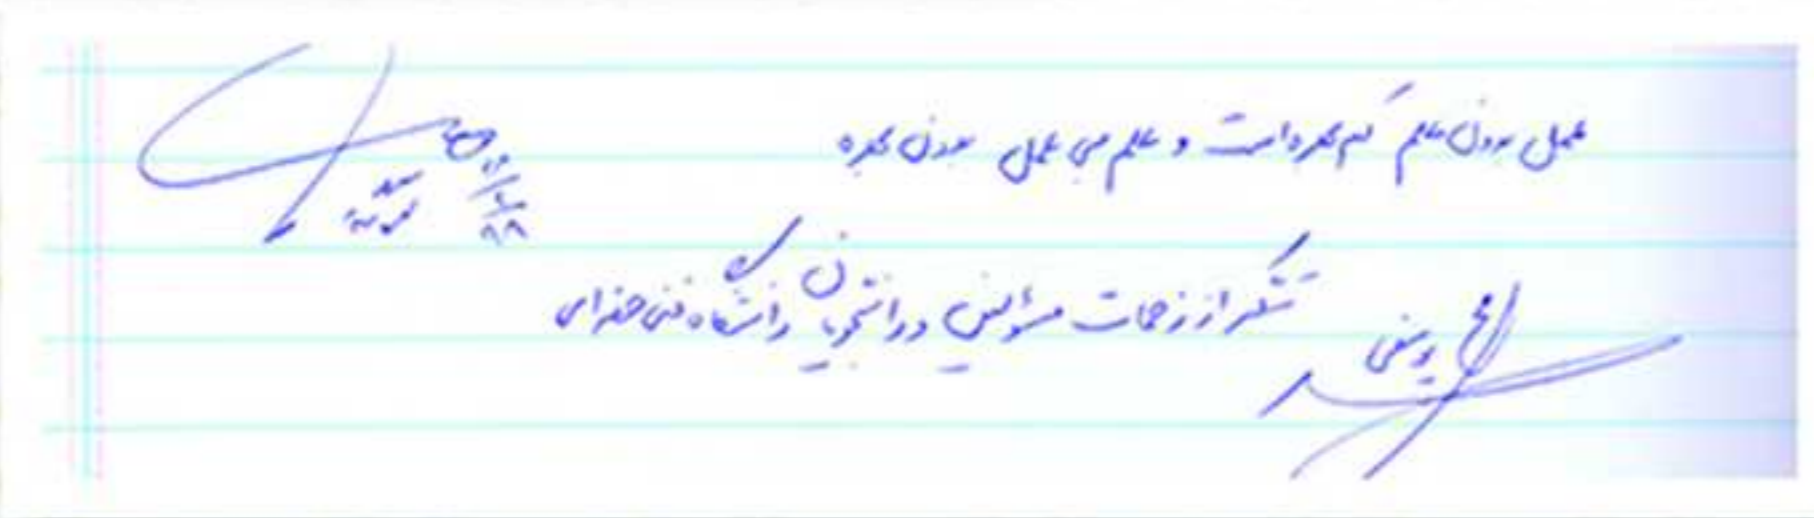 عمل بدون علم کم بهره است و علم بی عمل بدون بهره
تشکر از زحمات مسؤلین و دانشجویان دانشگاه فنی حرفه ای
یوسفی